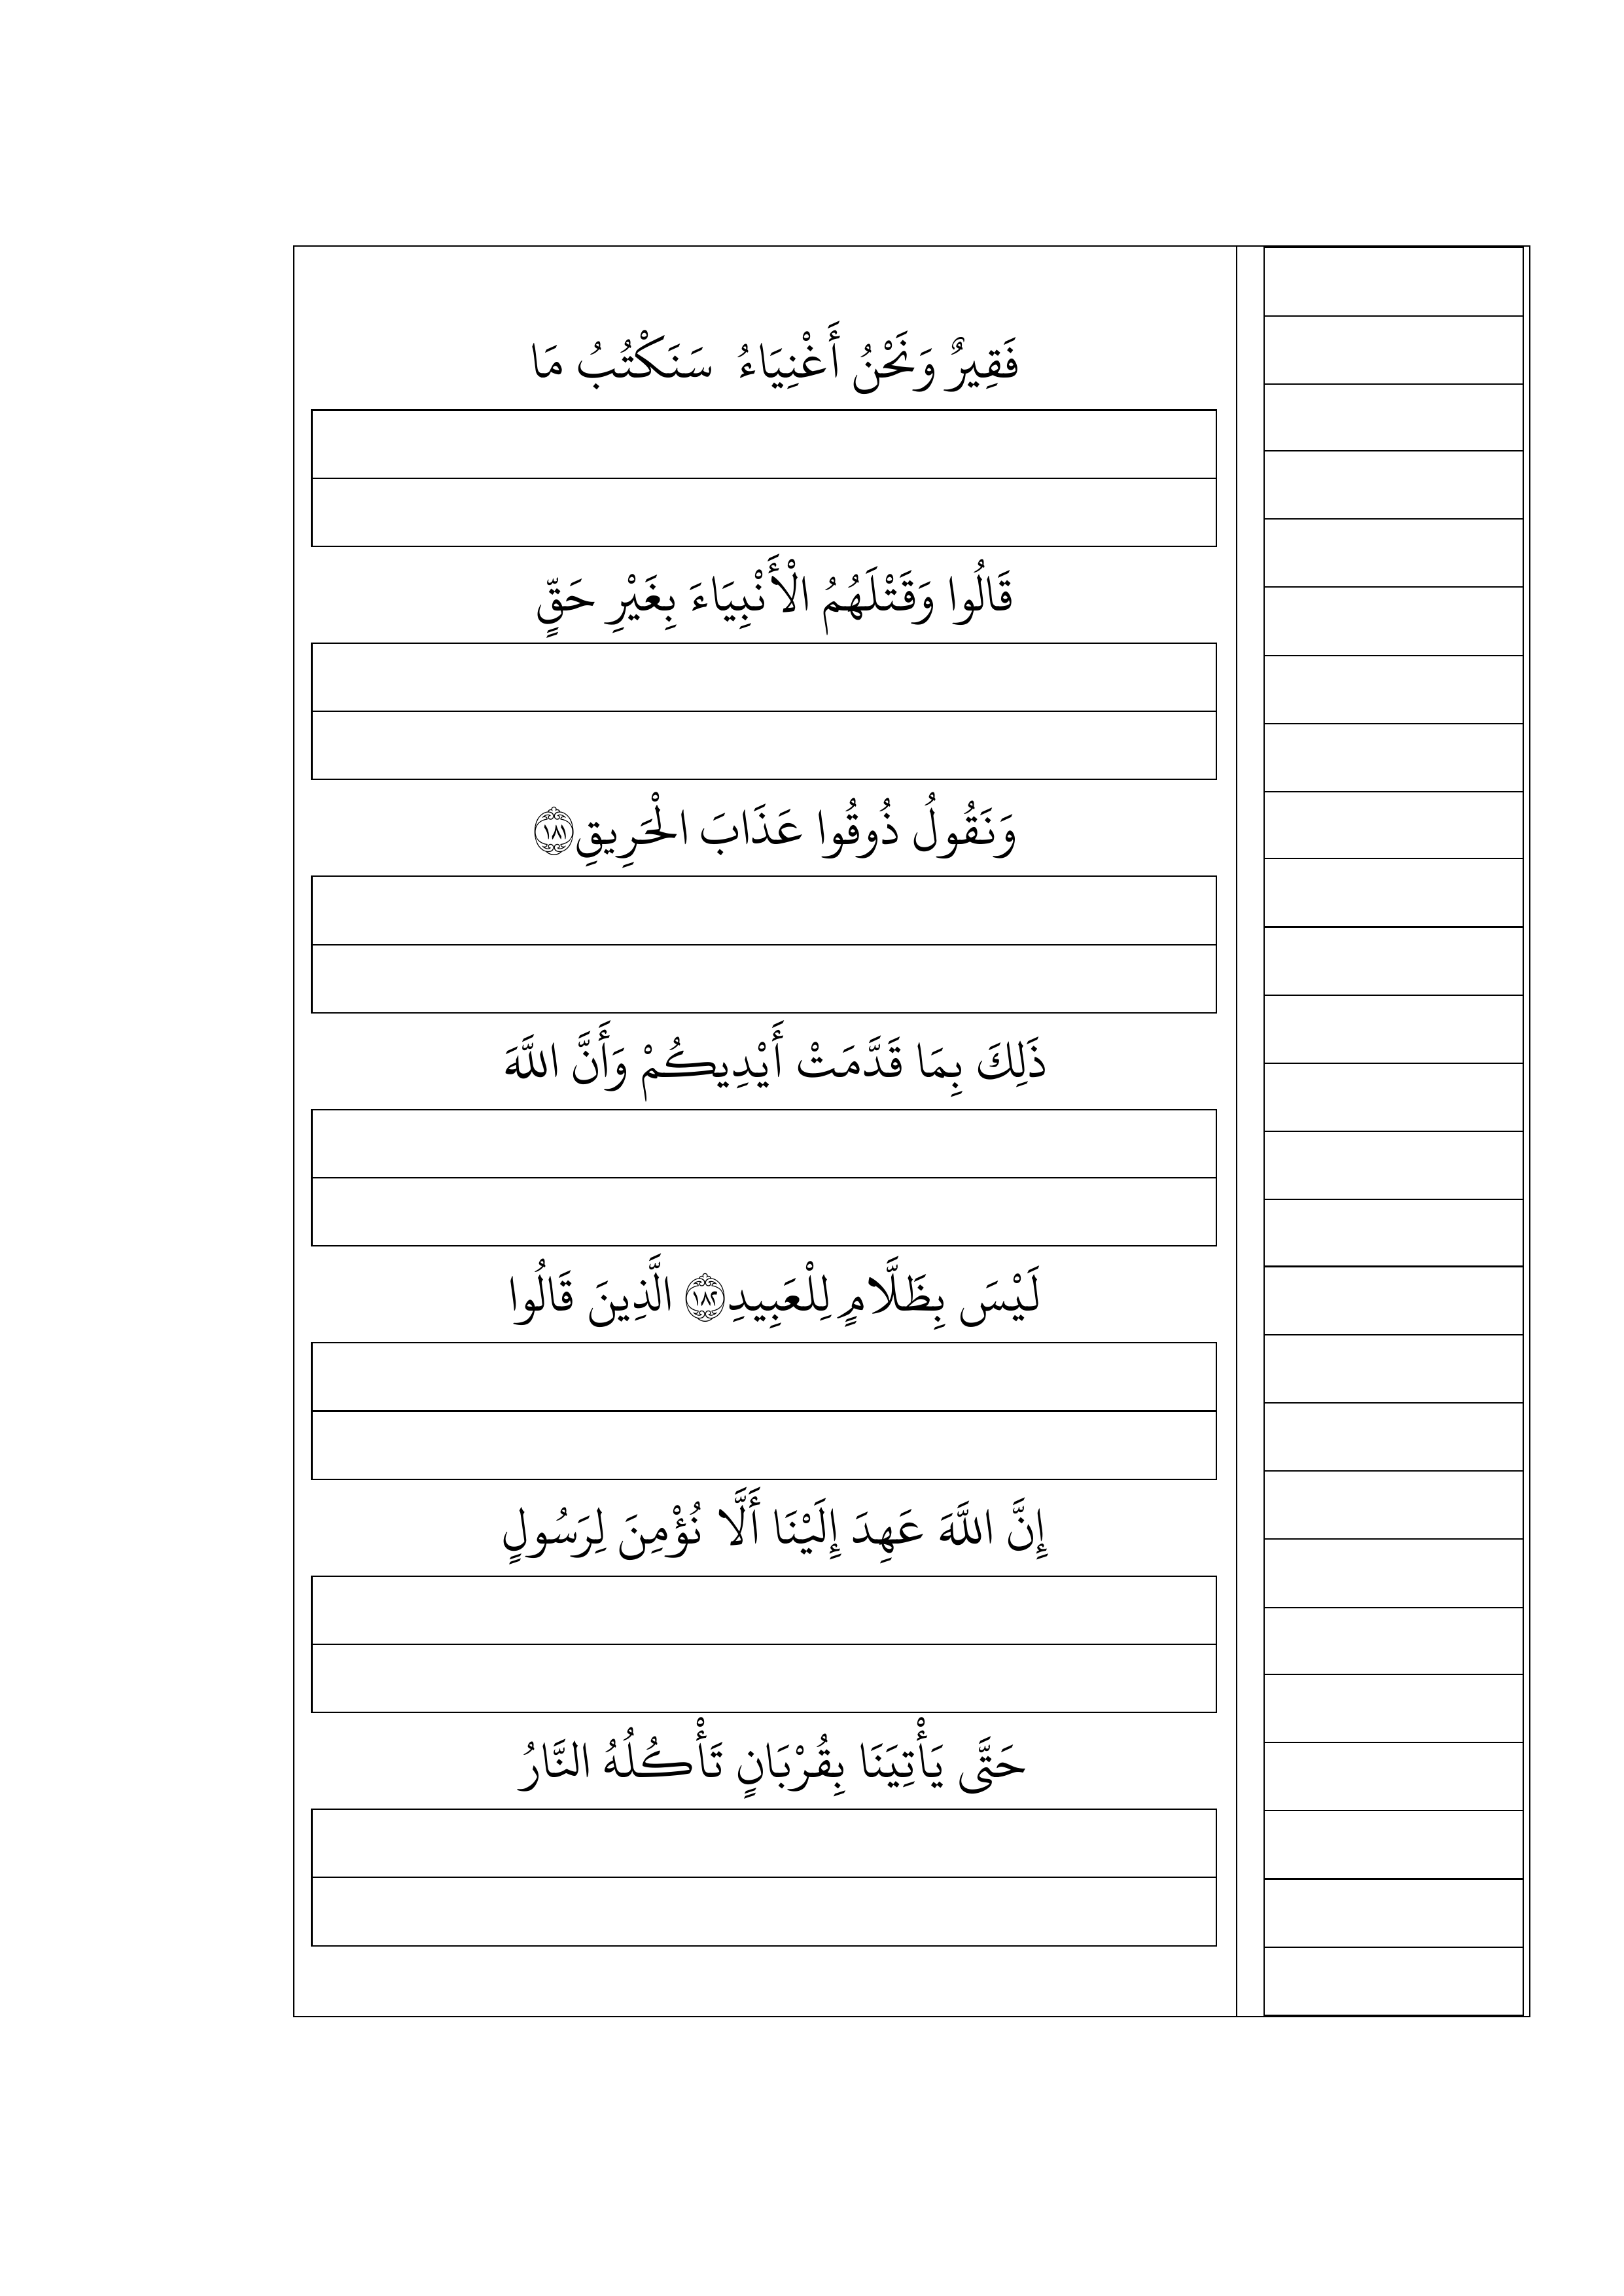 فَقِيرٌ وَنَحْنُ أَغْنِيَاءُ سَنَكْتُبُ مَا
قَالُوا وَقَتْلَهُمُ الْأَنْبِيَاءَ بِغَيْرِ حَقٍّ
وَنَقُولُ ذُوقُوا عَذَابَ الْحَرِيقِ ۝١٨١
ذَلِكَ بِمَا قَدَّمَتْ أَيْدِيكُمْ وَأَنَّ اللَّهَ
لَيْسَ بِظَلَّامٍ لِلْعَبِيدِ ۝١٨٢ الَّذِينَ قَالُوا
إِنَّ اللَّهَ عَهِدَ إِلَيْنَا أَلَّا نُؤْمِنَ لِرَسُولٍ
حَتَّى يَأْتِيَنَا بِقُرْبَانٍ تَأْكُلُهُ النَّارُ